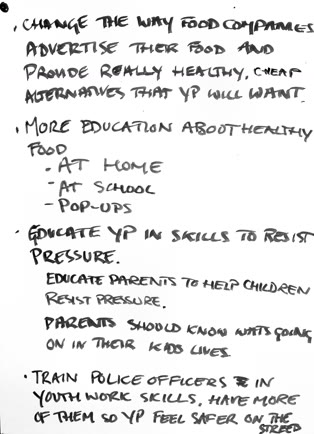 • CHANGE THE WAY FOOD COMPANIES
ADVERTISE THEIR FOOD AND
PROVIDE REALLY HEALTHY, CHEAP
ALTERNATIVES THAT YP WILL WANT.
• MORE EDUCATION ABOUT HEALTHY
FOOD
- AT HOME
- AT SCHOOL
- POP-UPS
• EDUCATE YP IN SKILLS TO RESIST
PRESSURE.
EDUCATE PARENTS TO HELP CHILDREN
RESIST PRESSURE.
PARENTS SHOULD KNOW WATS GOING
ON IN THEIR KIDS LIVES.
• TRAIN POLICE OFFICERS IN
YOUTH WORK SKILLS, HAVE MORE
OF THEM SO YP FEEL SAFER ON THE
STREET